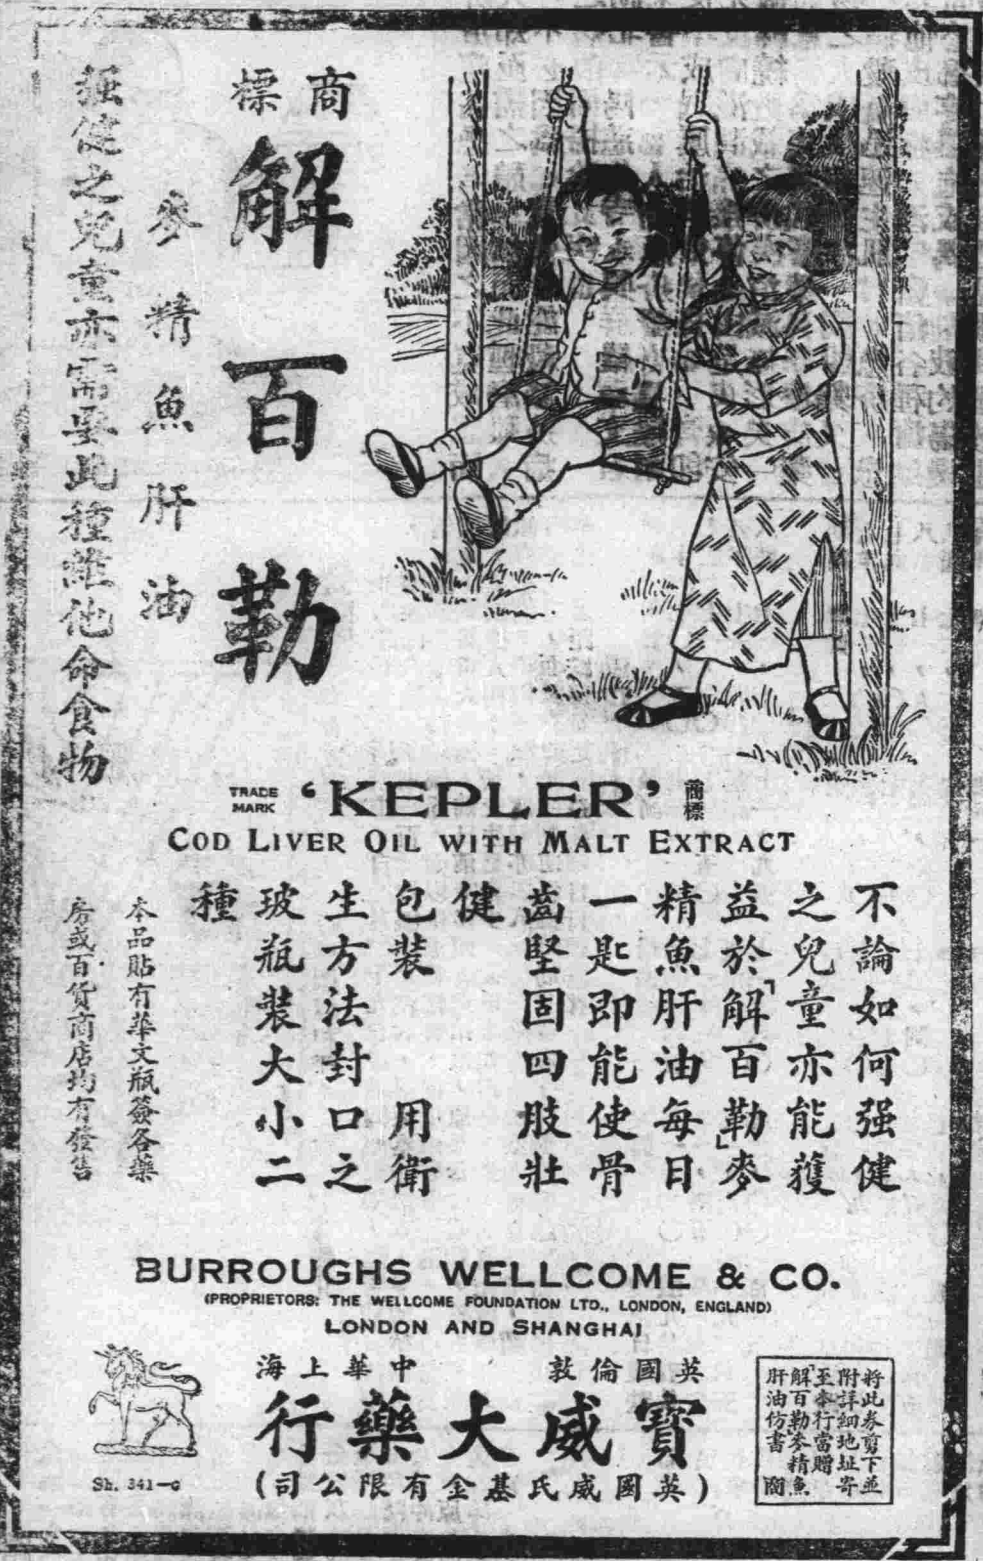 商標
解百勒
麥精魚肝油
强健之兒童亦需要此種維他命食物
TRADE MARK
‘KEPLER’
商標
COD LIVER OIL WITH MALT EXTRACT
不論如何强健
之兒童亦能獲
益於「解百勒」麥
精魚肝油每日
一匙即能使骨
齒堅固四肢壯
健
包裝 用衛
生方法封口之
玻瓶裝大小二
種
本品貼有華文瓶簽各藥
房或百貨商店均有發售
BURROUGHS WELLCOME & CO.
(PROPRIETORS: THE WELLCOME FOUNDATION LTD., LONDON, ENGLAND)
LONDON AND SHANGHAI
英國倫敦 中華上海
寶威大藥行
(英國威氏基金有限公司)
將此券剪下並
附詳細地址寄
至本行當贈
「解百勒」麥精魚
肝油仿書
Sh. 341-c